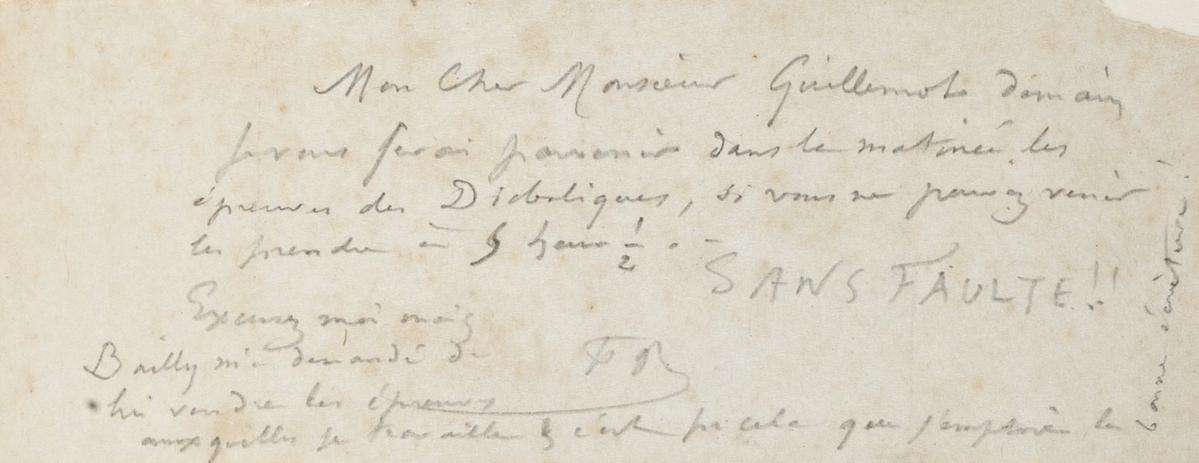 Mon Cher Monsieur Guillemot demain
je vous ferai parvenir dans la matinée les
épreuves des Diaboliques, si vous ne pouvez venir
les prendre à 5 heur 1/2.
SANS FAULTE!!
Excusez moi mais
Bailly m'a demandé de
lui vendre les épreuves
FR
auxquelles je travaille & c'est pr cela que j'emploie la
bonne écriture!